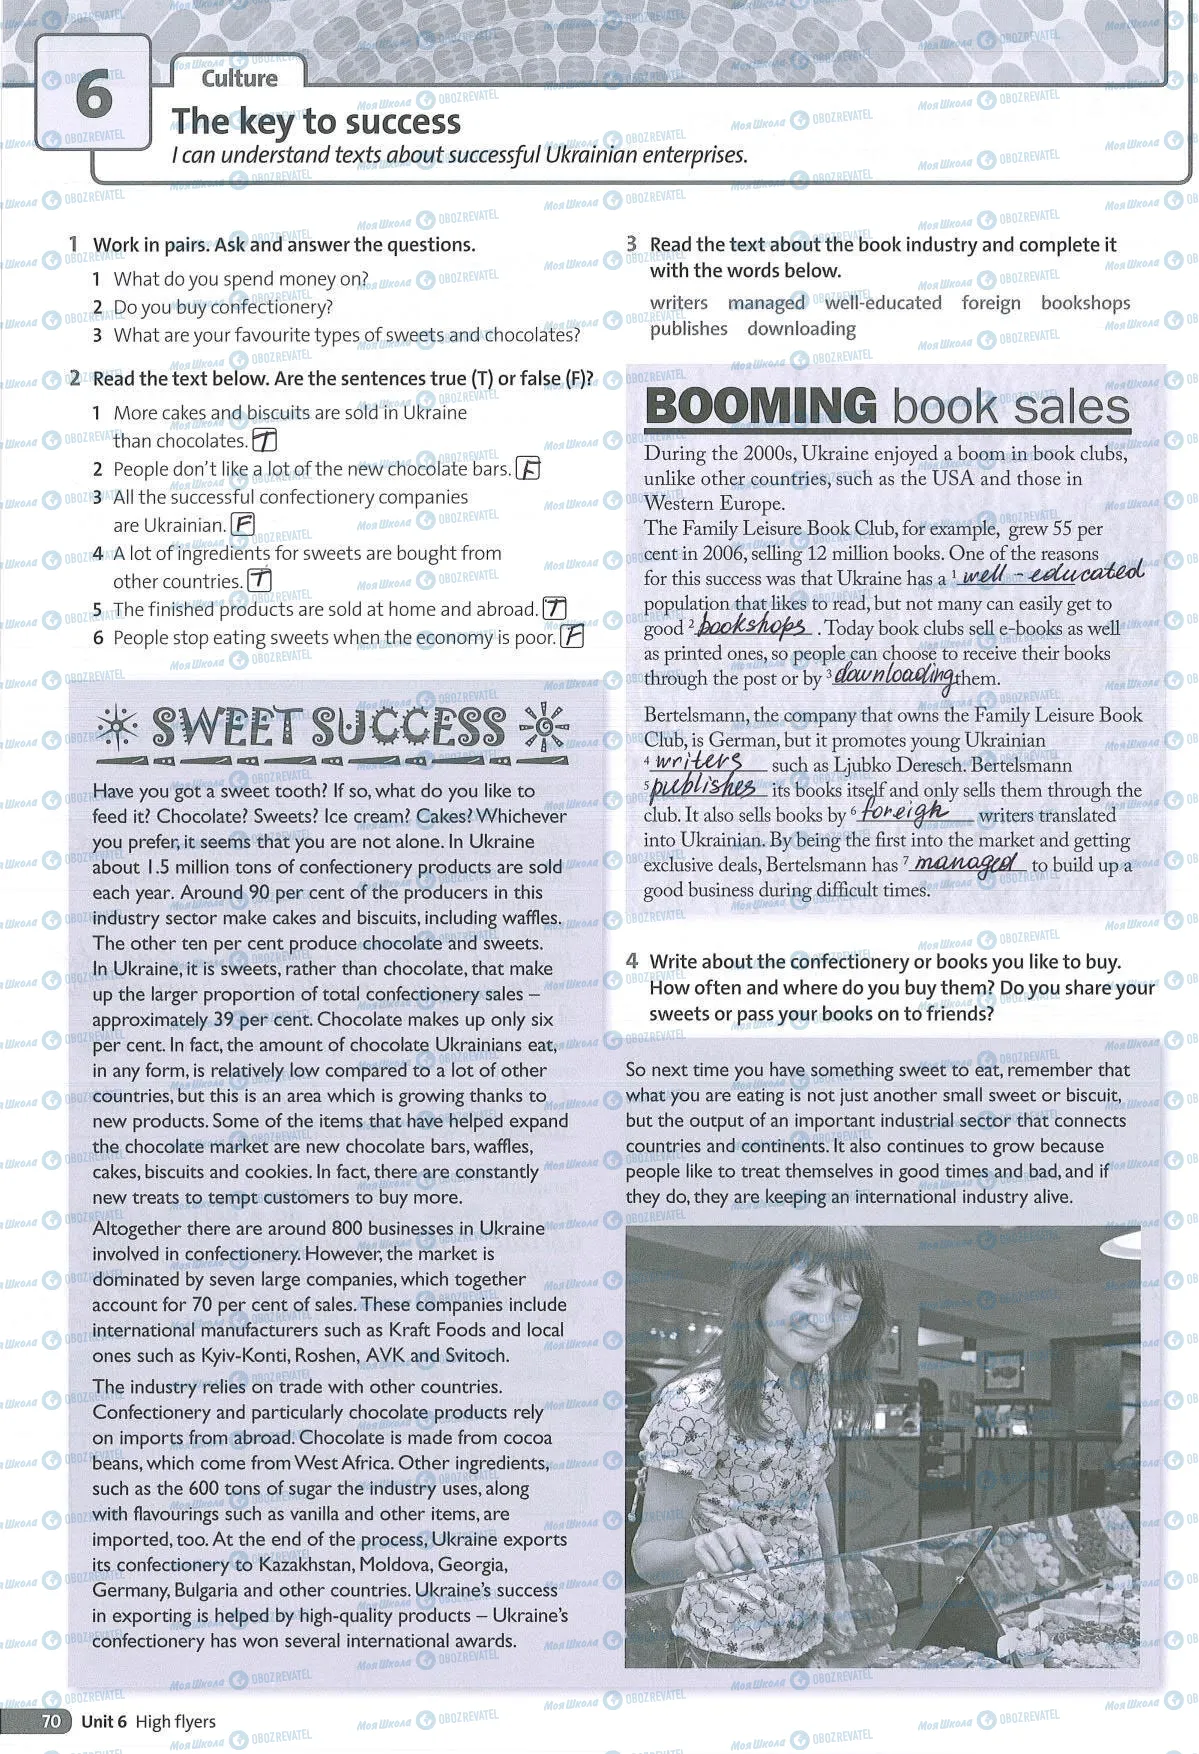 6
Culture
The key to success
I can understand texts about successful Ukrainian enterprises.
1 Work in pairs. Ask and answer the questions.
1 What do you spend money on?
2 Do you buy confectionery?
3 What are your favourite types of sweets and chocolates?
2 Read the text below. Are the sentences true (T) or false (F)?
1 More cakes and biscuits are sold in Ukraine
than chocolates. T
2 People don't like a lot of the new chocolate bars. F
3 All the successful confectionery companies
are Ukrainian. F
4 A lot of ingredients for sweets are bought from
other countries. T
5 The finished products are sold at home and abroad. T
6 People stop eating sweets when the economy is poor. F
SWEET SUCCESS
Have you got a sweet tooth? If so, what do you like to
feed it? Chocolate? Sweets? Ice cream? Cakes? Whichever
you prefer, it seems that you are not alone. In Ukraine
about 1.5 million tons of confectionery products are sold
each year. Around 90 per cent of the producers in this
industry sector make cakes and biscuits, including waffles.
The other ten per cent produce chocolate and sweets.
In Ukraine, it is sweets, rather than chocolate, that make
up the larger proportion of total confectionery sales –
approximately 39 per cent. Chocolate makes up only six
per cent. In fact, the amount of chocolate Ukrainians eat,
in any form, is relatively low compared to a lot of other
countries, but this is an area which is growing thanks to
new products. Some of the items that have helped expand
the chocolate market are new chocolate bars, waffles,
cakes, biscuits and cookies. In fact, there are constantly
new treats to tempt customers to buy more.
Altogether there are around 800 businesses in Ukraine
involved in confectionery. However, the market is
dominated by seven large companies, which together
account for 70 per cent of sales. These companies include
international manufacturers such as Kraft Foods and local
ones such as Kyiv-Konti, Roshen, AVK and Svitoch.
The industry relies on trade with other countries.
Confectionery and particularly chocolate products rely
on imports from abroad. Chocolate is made from cocoa
beans, which come from West Africa. Other ingredients,
such as the 600 tons of sugar the industry uses, along
with flavourings such as vanilla and other items, are
imported, too. At the end of the process, Ukraine exports
its confectionery to Kazakhstan, Moldova, Georgia,
Germany, Bulgaria and other countries. Ukraine's success
in exporting is helped by high-quality products – Ukraine's
confectionery has won several international awards.
3 Read the text about the book industry and complete it
with the words below.
writers managed well-educated foreign bookshops
publishes downloading
BOOMING book sales
During the 2000s, Ukraine enjoyed a boom in book clubs,
unlike other countries, such as the USA and those in
Western Europe.
The Family Leisure Book Club, for example, grew 55 per
cent in 2006, selling 12 million books. One of the reasons
for this success was that Ukraine has a 1 well - educated
population that likes to read, but not many can easily get to
good 2 bookshops . Today book clubs sell e-books as well
as printed ones, so people can choose to receive their books
through the post or by 3 downloading them.
Bertelsmann, the company that owns the Family Leisure Book
Club, is German, but it promotes young Ukrainian
4 writers such as Ljubko Deresch. Bertelsmann
5 publishes its books itself and only sells them through the
club. It also sells books by 6 foreign writers translated
into Ukrainian. By being the first into the market and getting
exclusive deals, Bertelsmann has 7 managed to build up a
good business during difficult times.
4 Write about the confectionery or books you like to buy.
How often and where do you buy them? Do you share your
sweets or pass your books on to friends?
So next time you have something sweet to eat, remember that
what you are eating is not just another small sweet or biscuit,
but the output of an important industrial sector that connects
countries and continents. It also continues to grow because
people like to treat themselves in good times and bad, and if
they do, they are keeping an international industry alive.
70 Unit 6 High flyers
Моя Школа OBOZREVATEL